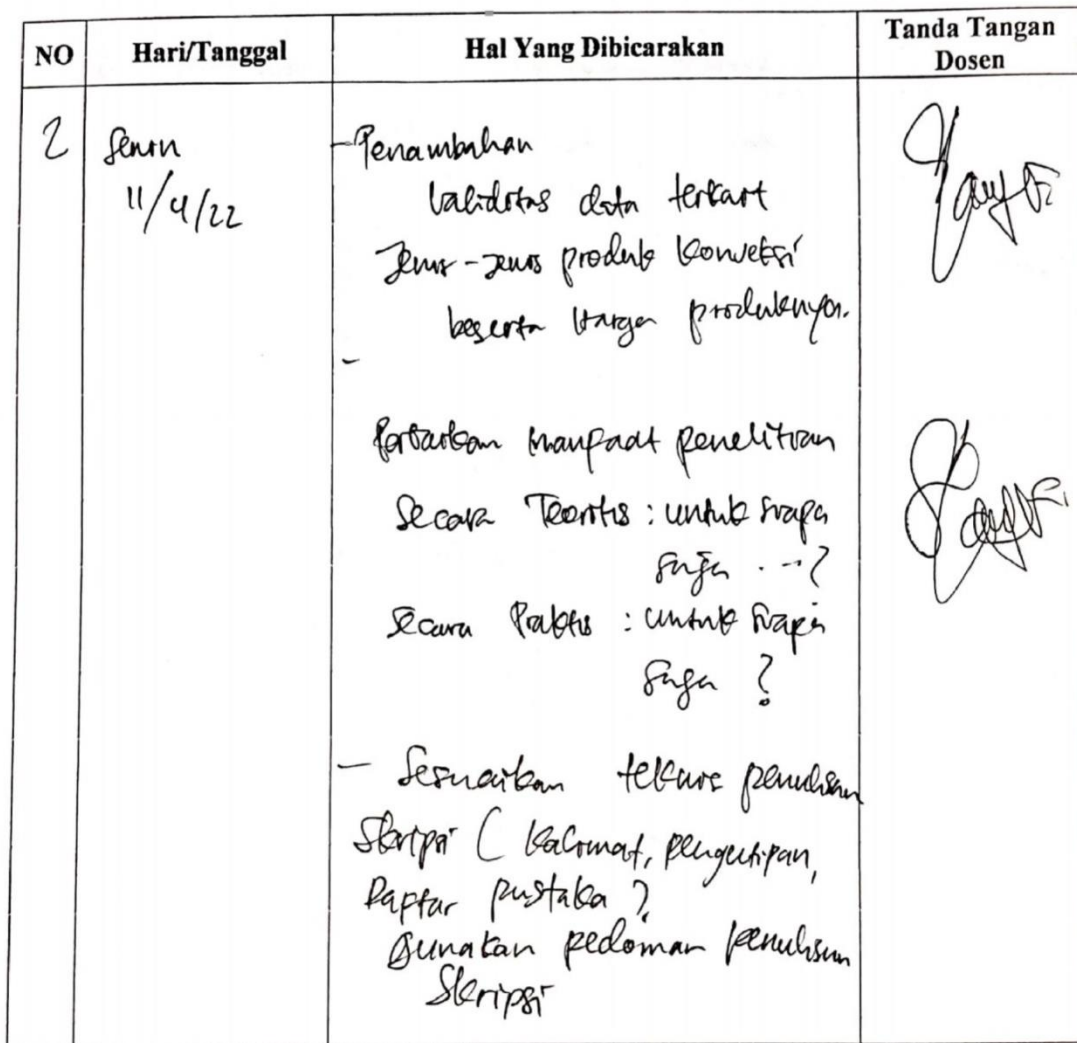 NO Hari/Tanggal Hal Yang Dibicarakan Tanda Tangan Dosen
2 Senin
11/4/22
- Penambahan
validitas data terkait
Jenis-jenis produk Konveksi
beserta harga produknya.
-
Perbaikan manfaat penelitian
Secara Teoritis : untuk siapa
saja ...?
Secara Praktis : untuk siapa
saja ?
- Sesuaikan teknis penulisan
Skripsi ( Kalimat, pengutipan,
Daptar pustaka )
Gunakan pedoman penulisan
Skripsi